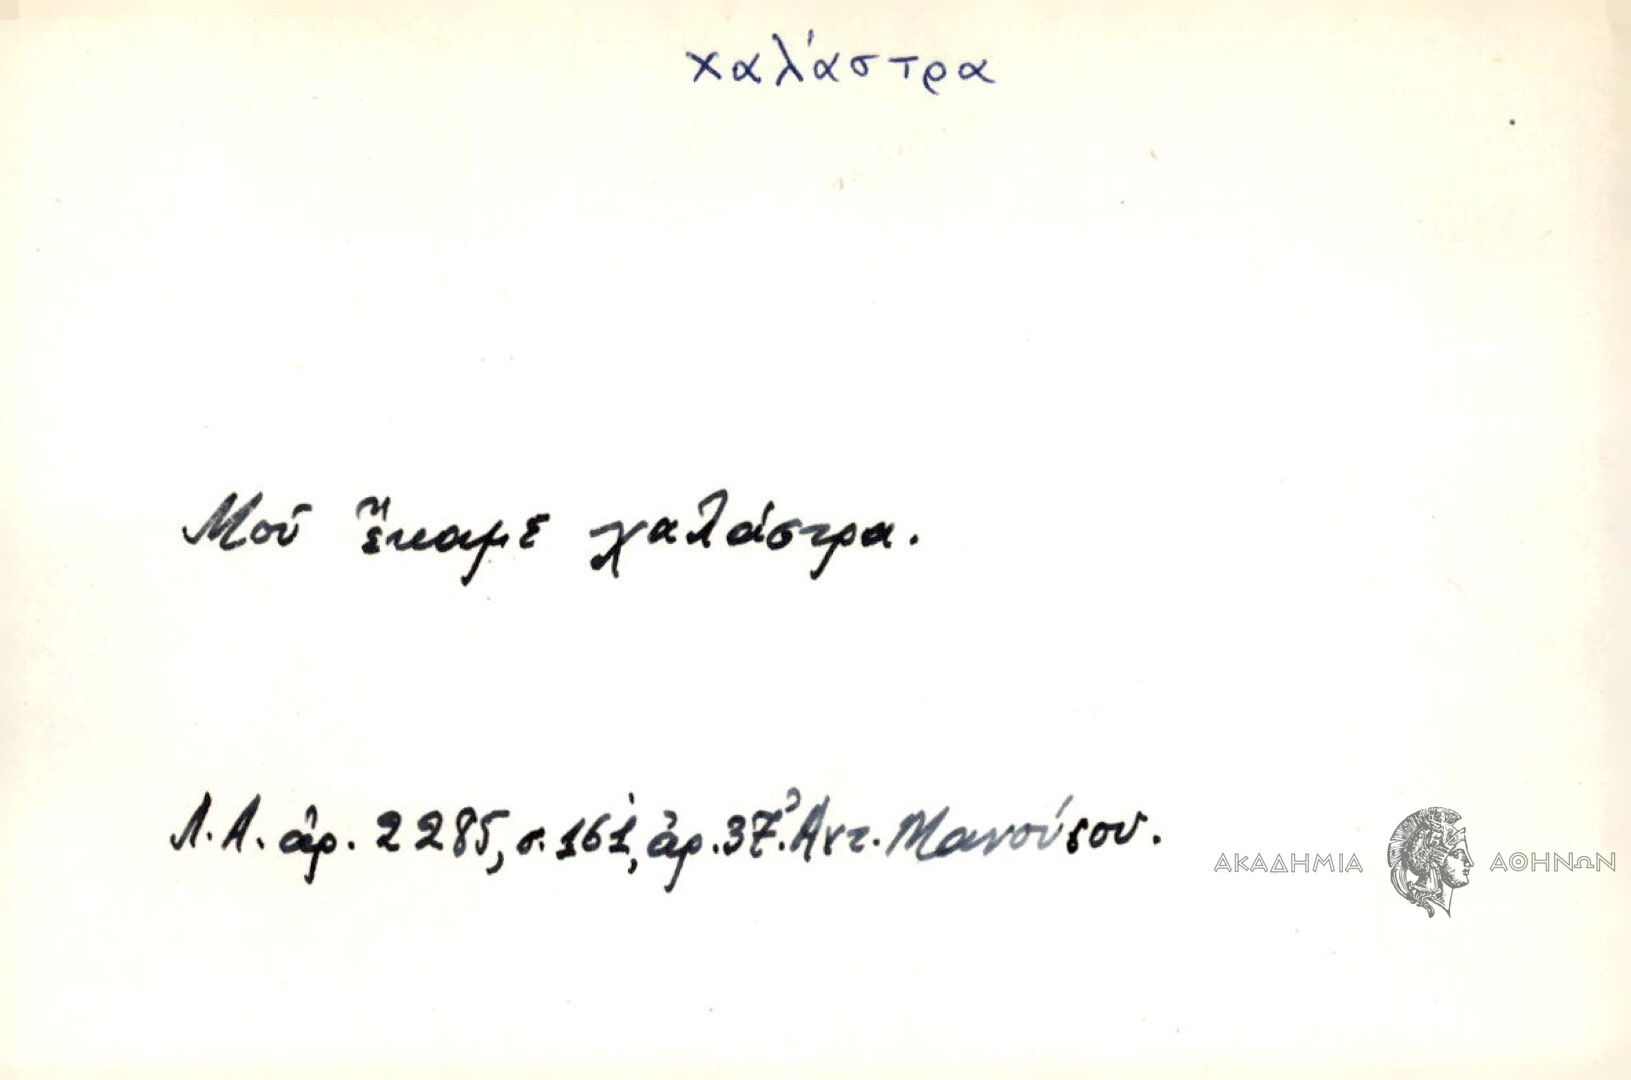 χαλάστρα
Μοῦ ἔκαμε χαλάστρα.
Λ.Α. ἀρ. 2285, σ. 161, ἀρ. 37. Ἀντ. Μανούσου.
ΑΚΑΔΗΜΙΑ ΑΘΗΝΩΝ